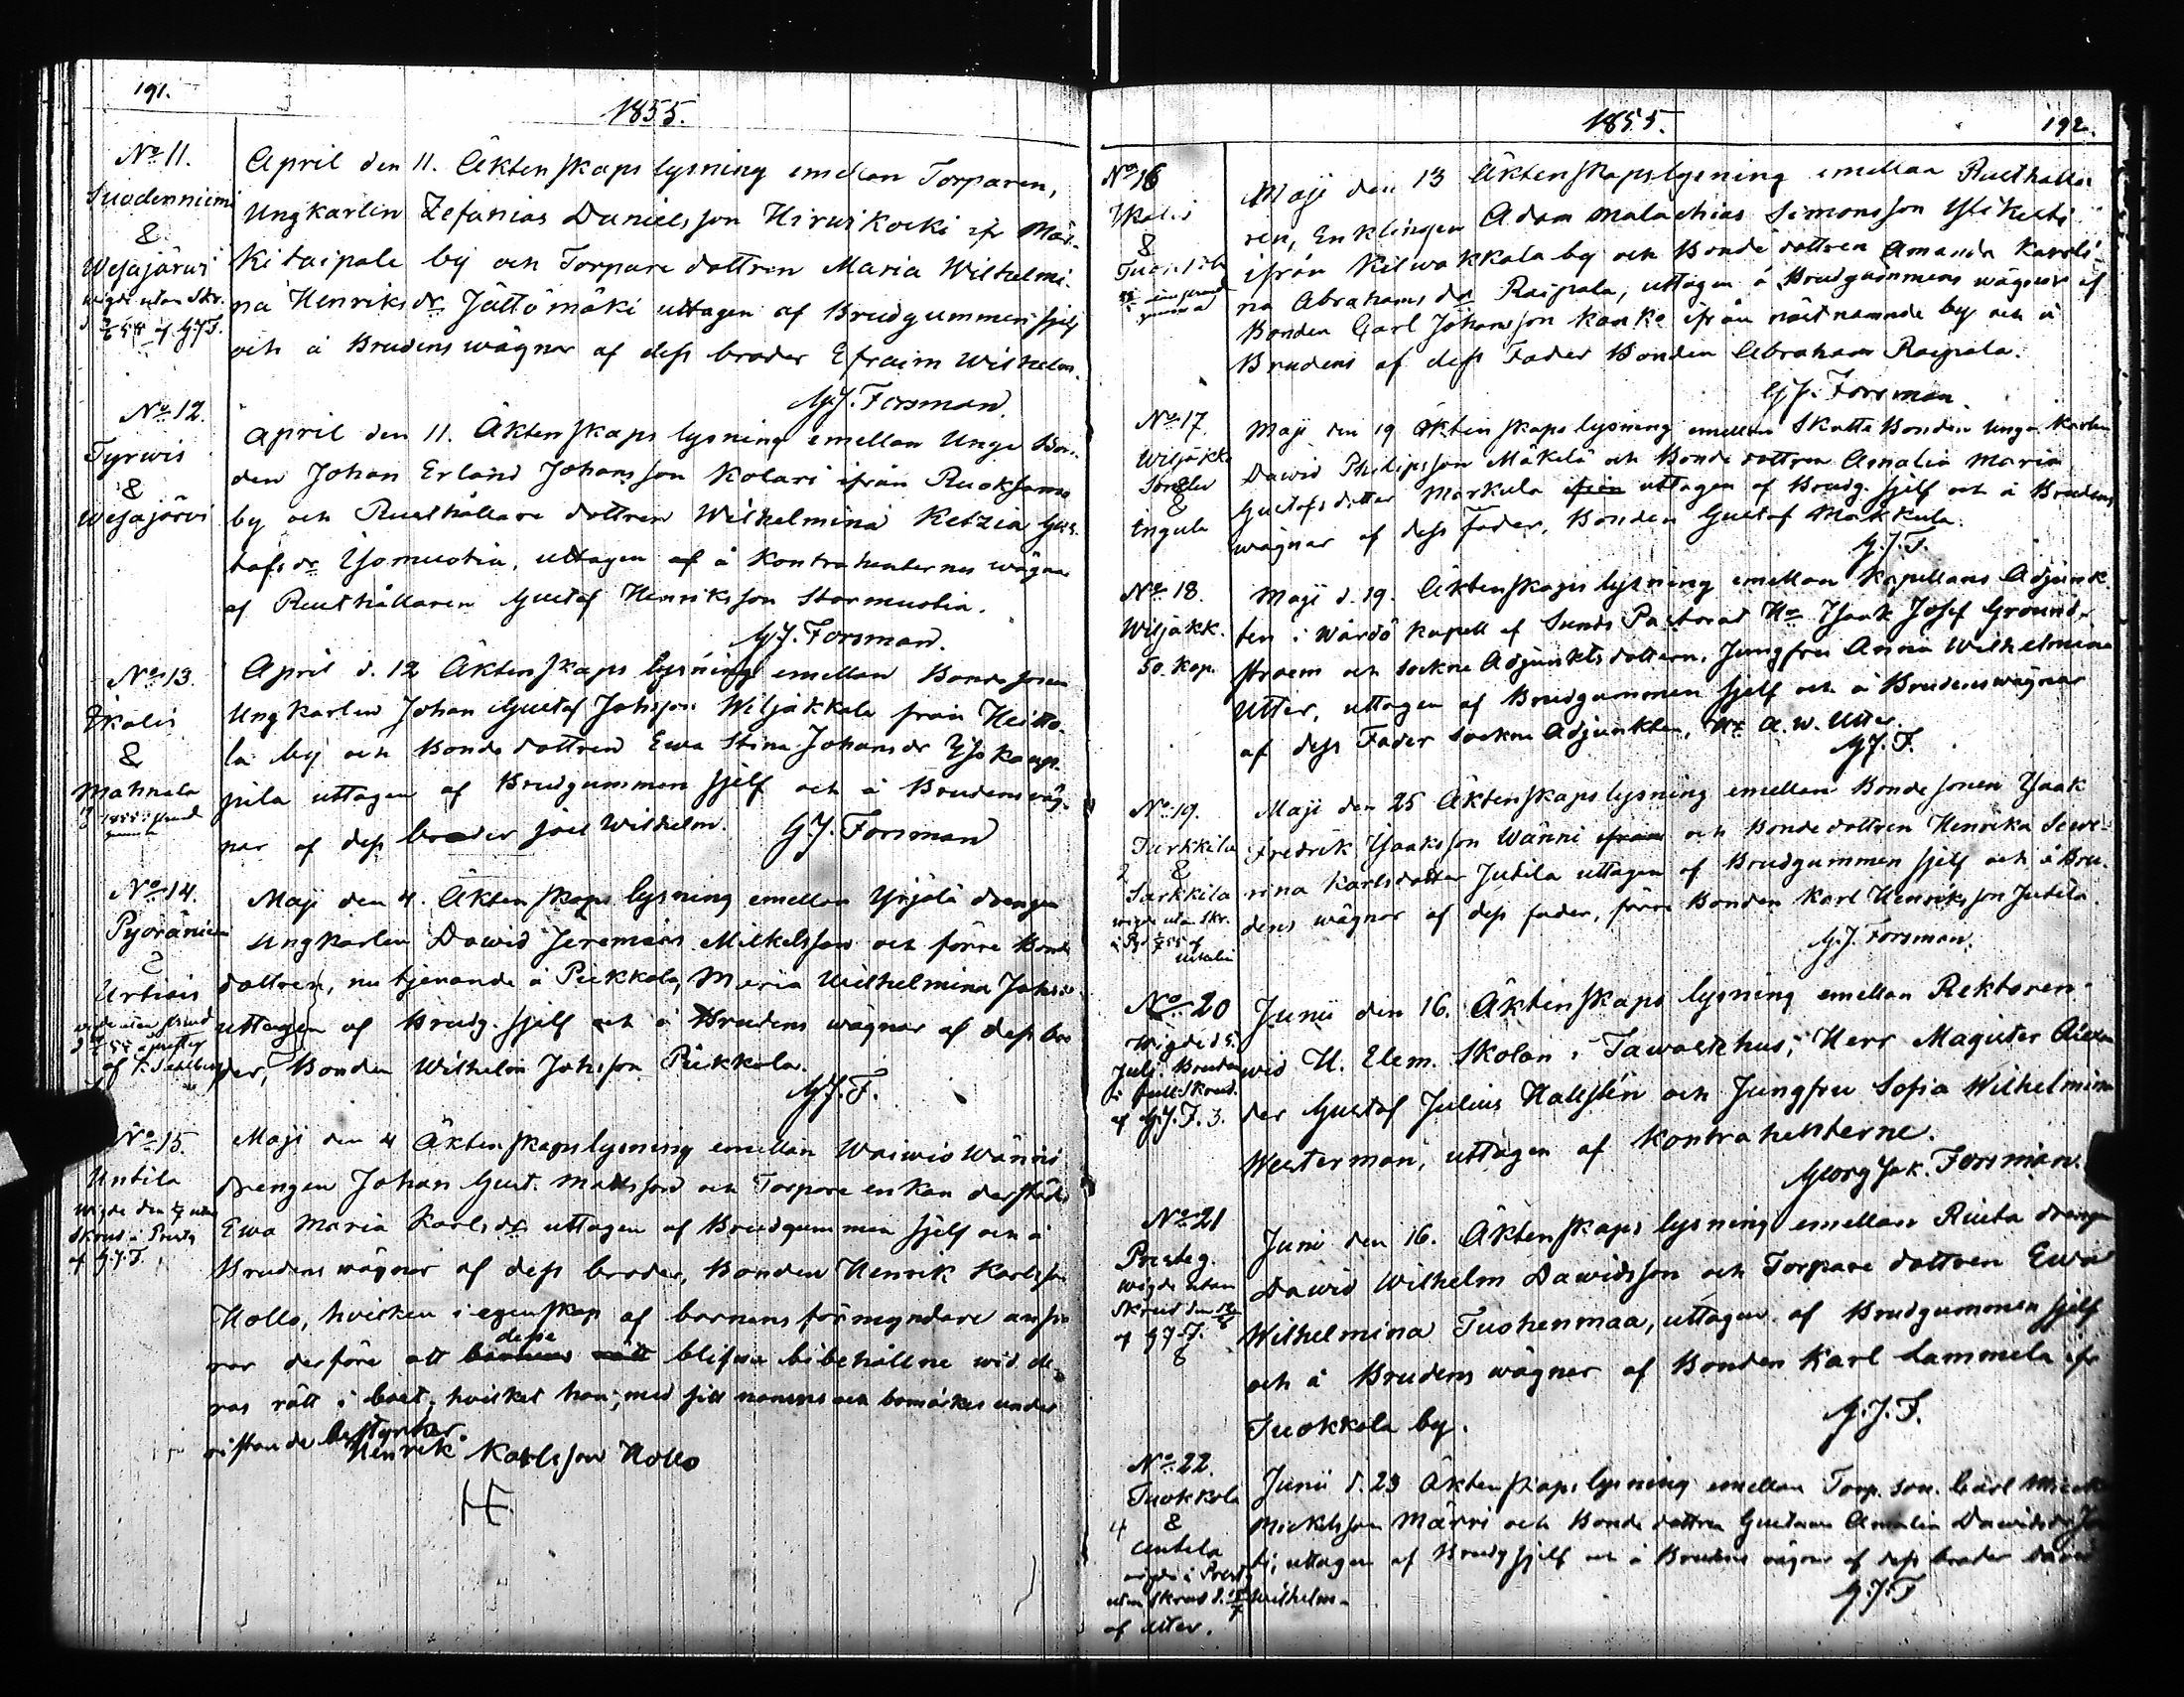 191.
1855.
No 11.
Suodenniemi
&
Wesajärwi
April den 11. Äktenskaps lysning emellan Torparen,
Ungkarlen Zefanias Danielsson Hirwikoski ifr Mär-
kitaipale by och Torpare dottren Maria Wilhelmi-
na Henriks dr Jättömäki uttagen af Brudgummen sjelf
och å Brudens wägnar af dess broder Efraim Wilhelm.
G.J. Forsman.
No 12.
Tyrwis
&
Wesajärvi
April den 11. Äktenskaps lysning emellan Unge Bon-
den Johan Erland Johansson Kolari ifrån Ruoksamo
by och Rusthållare dottren Wilhelmina Ketzia Gus-
tafs dr Isomustia, uttagen af å Kontrahenternes wägnar
af Rusthållaren Gustaf Henriksson Stormustia.
G.J. Forsman.
No 13.
Ikalis
&
Mahnala
April d. 12 Äktenskaps lysning emellan Bondesonen
Ungkarlen Johan Gustaf Johsson Wiljakkala från Heitto-
la by och Bonde dottren Ewa Stina Johansdr Yskaup-
pila uttagen af Brudgummen sjelf och å Brudens wäg-
nar af dess broder Joel Wilhelm. G.J. Forsman
No 14.
Pyöräniemi
&
Urtiais
Maji den 4. Äktenskaps lysning emellan Yrjölä drengen
Ungkarlen Dawid Jeremias Mikkelsson och förre Bonde
dottren, nu tjenande å Piekkola, Maria Wilhelmina Johsdr
uttagen af Brudg. sjelf och å Brudens wägnar af dess bro-
der, Bonden Wilhelm Johsson Piekkola.
G.J.F.
No 15.
Untila
af G.J.F.
Maji den 4 Äktenskapslysning emellan Waiwio Wänni
drengen Johan Gust. Mattsson och Torpare enkan derstädes
Ewa Maria Karlsdr uttagen af Brudgummen sjelf och å
Brudens wägnar af dess broder, Bonden Henrik Karlsson
Hollo, hvilken i egenskap af barnens förmyndare answa-
rar derföre att barnens rätt desse blifwa bibehållne wid de-
ras rätt i boet, hvilket han, med sitt namns och bomärkes under
ristande bestyrker.
Henrik Karlsson Hollo
1855.
192.
No 16
Ikalis
&
Maji den 13 Äktenskapslysning emellan Rusthålla-
ren, Enklingen Adam Malachias Simonsson Ylikesti
ifrån Kilwakkala by och Bonde dottren Amanda Karoli-
na Abrahams dr Raipala, uttagen å Brudgummens wägnar af
Bonden Carl Johansson Kanko ifrån näst namnde by och å
Brudens af dess Fader Bonden Abraham Raipala.
G.J. Forsman.
No 17.
Wiljakk.
&
Ingula
Maji den 19 Äktenskaps lysning emellan Skatte Bonden Unga Karlen
Dawid Philipsson Mäkelä och Bonde dottren Amalia Maria
Gustafs dotter Markula ifrån uttagen af Brudg. sjelf och å Brudens
wägnar af dess Fader, Bonden Gustaf Markkula.
G.J.F.
No 18.
Wiljakk.
50. Kop.
Maji d. 19. Äktenskaps lysning emellan Kapellans Adjunk-
ten i Wårdö Kapell af Sunds Pastorat Hr Isaak Josef Grönd-
stroem och Sockne Adjunkts dottern, Jungfru Anna Wilhelmina
Utter, uttagen af Brudgummen sjelf och å Brudens wägnar
af dess Fader Sockne Adjunkten, Hr A. W. Utter.
G.J.F.
No 19.
Turkkila
&
Sarkkila
Maji den 25 Äktenskapslysning emellan Bondesonen Isaak
Fredrik Isaksson Wänni ifrån och Bondedottren Henrika Sewe-
rina Karlsdotter Jutila uttagen af Brudgummen sjelf och å Bru-
dens wägnar af dess fader, förre Bonden Karl Henriksson Jutila.
G.J. Forsman.
No 20
Wigde d 5.
Julj. Bruden
i full Skrud.
af G.J.F. 3.
Junii den 16. Äktenskaps lysning emellan Rektoren
wid H. Elem. Skolan i Tawastehus, Herr Magister Alexan-
der Gustaf Julius Hallstén och Jungfru Sofia Wilhelmina
Westerman, uttagen af Kontrahenterne.
Georg Jak. Forsman.
No 21
Presteg.
wigde utan
Skrud
af G.J.F.
8
Junii den 16. Äktenskaps lysning emellan Riuta drengen
Dawid Wilhelm Dawidsson och Torpare dottren Ewa
Wilhelmina Tuohenmaa, uttagen af Brudgummen sjelf
och å Brudens wägnar af Bonden Karl Lammela ifr
Tuokkola by.
G.J.F.
No 22.
Tuokkola
4 &
Untila
af Utter.
Junii d. 23 Äktenskaps lysning emellan Torp. son. Carl
Mickelsson Märri och Bonde dottren Gustava Amalia Dawidsdr
uttagen af Brudg sjelf och å Brudens wägnar af dess broder Dawid
Wilhelm.
G.J.F